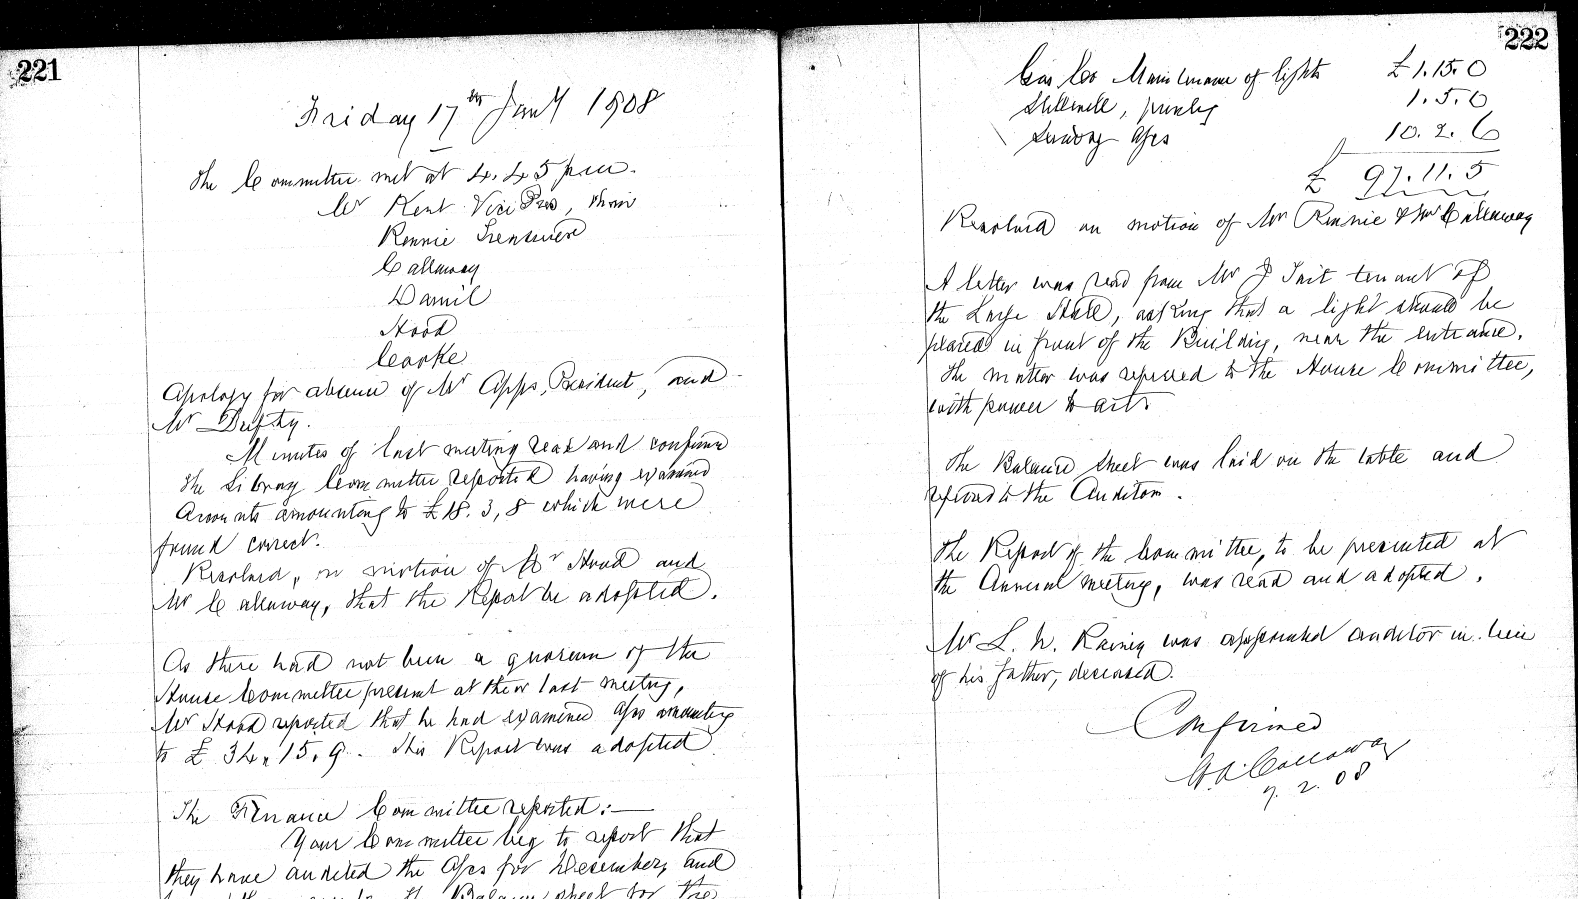 221
Friday 17th Jany 1908
The Committee met at 4.45 pm.
Mr Kent Vice Pres, Chair
Rennie Treasurer
Callaway
Daniel
Hood
Cooke
Apology for absence of Mr Apps, President, and
Mr Dufty.
Minutes of last meeting read and confirmed
The Library Committee reported having examined
Accounts amounting to £18.3,8 which were
found correct.
Resolved, on motion of Mr Hood and
Mr Callaway, that the Report be adopted.
As there had not been a quorum of the
House Committee present at their last meeting,
Mr Hood reported that he had examined a/cs amounting
to £ 34.15.9. This Report was adopted
The Finance Committee reported:—
Your Committee beg to report that
they have audited the a/cs for December, and
the Balance sheet for the
222
Gas Co Maintenance of lights £1.15.0
Stilwell, printing 1.5.0
Sundry a/cs 10.2.6
£ 97.11.5
Resolved on motion of Mr Rennie & Mr Callaway
A letter was read from Mr J Tait tenant of
the Large Hall, asking that a light should be
placed in front of the Building, near the entrance.
The matter was referred to the House Committee,
with power to act.
The Balance Sheet was laid on the table and
referred to the Auditors.
The Report of the Committee, to be presented at
the Annual meeting, was read and adopted.
Mr L. N. Rainey was appointed auditor in lieu
of his father, deceased.
Confirmed
Callaway
7.2.08